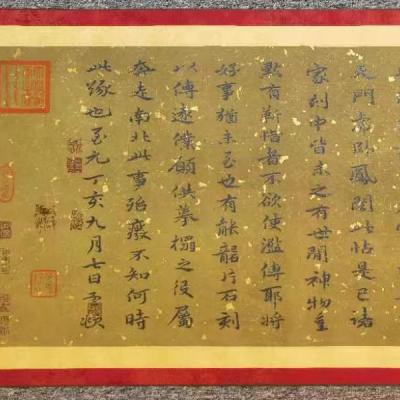 天門虎卧鳳閣此帖是已諸
家刻中皆未之有世間神物
默有靳惜者不欲使濫傳耶將
好事猶未至也有能片石刻
以傳遠僕願供摹搨之役屬
奔走南北此事殆癈不知何時
此緣也至元丁亥九月七日孟頫